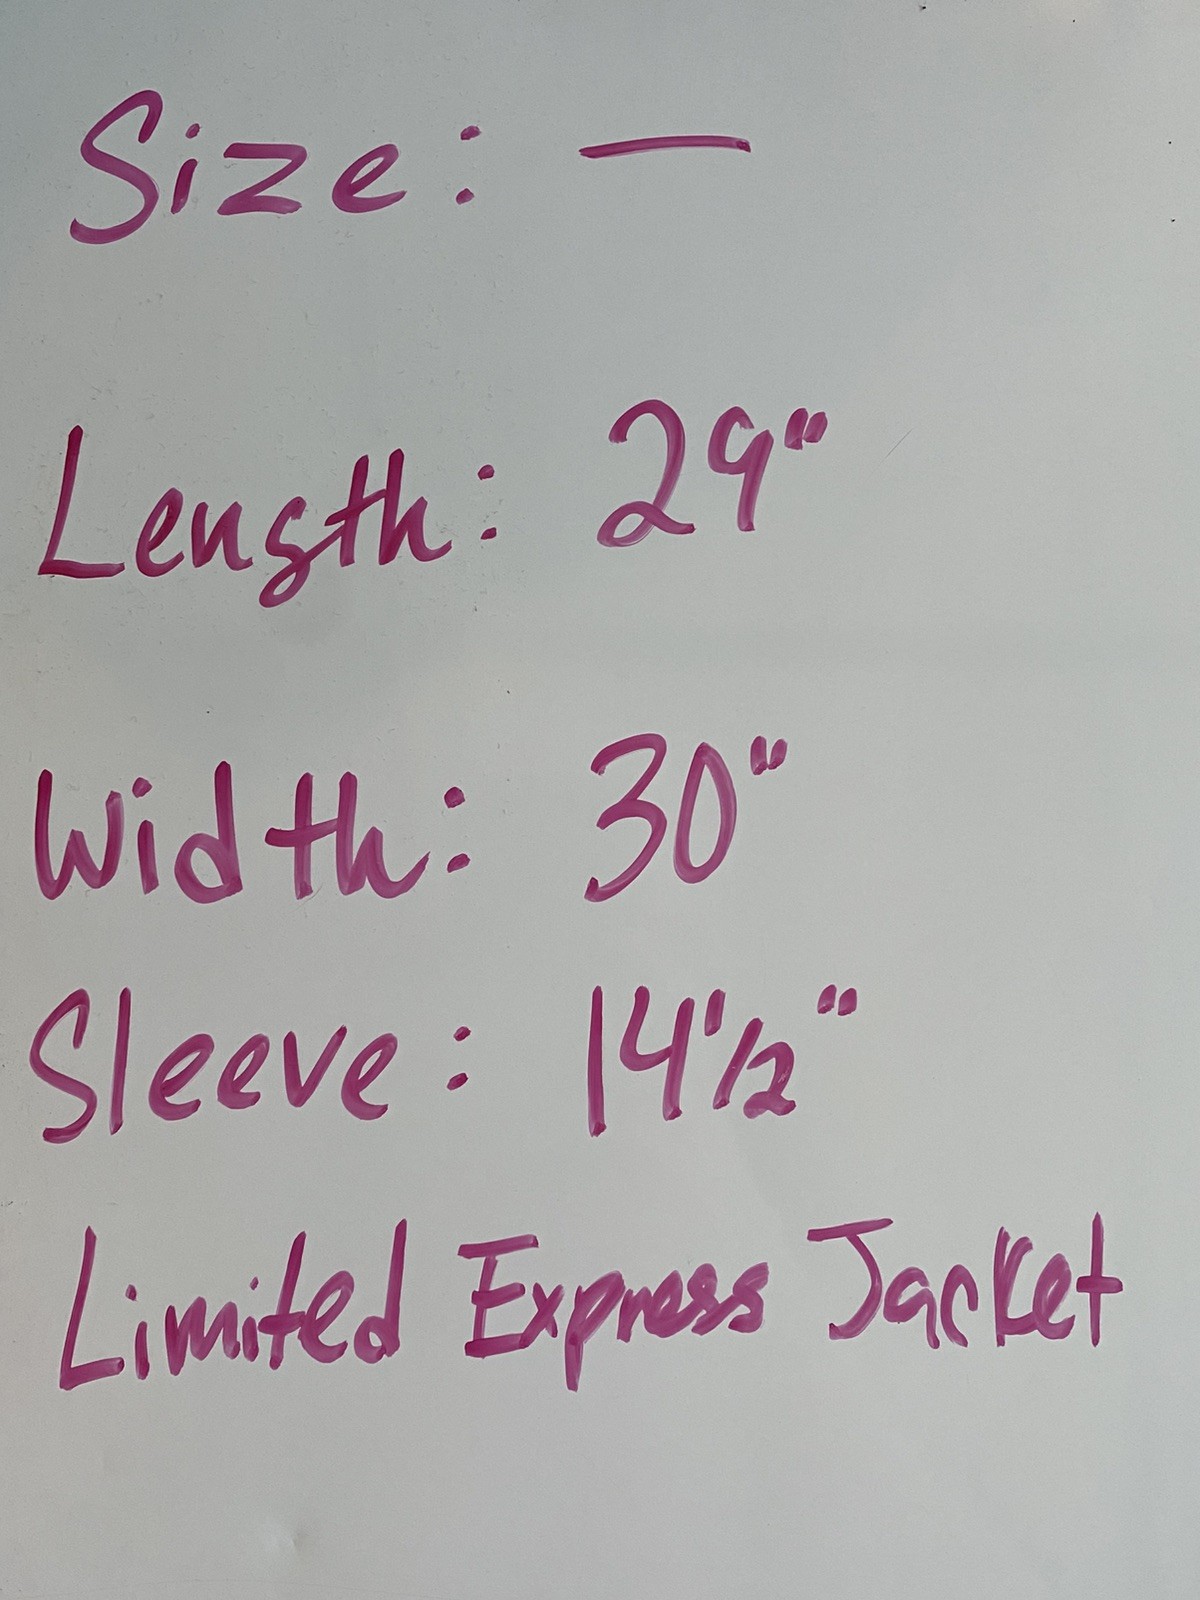 Size: —
Length: 29"
Width: 30"
Sleeve: 14 1/2"
Limited Express Jacket